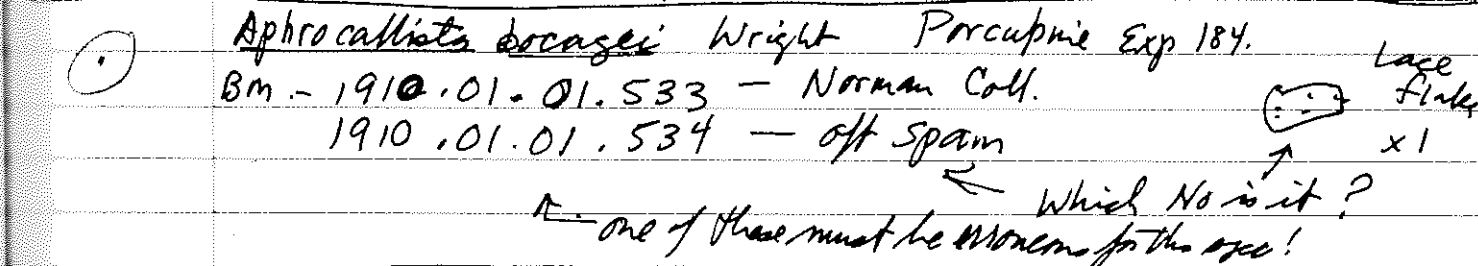 Aphrocallistes bocagei Wright Porcupine Exp 184.
BM - 1910.01.01.533 - Norman Coll.
1910.01.01.534 - off Spain
Lace
flake
x1
← Which No is it?
one of these must be erroneous for this spec!